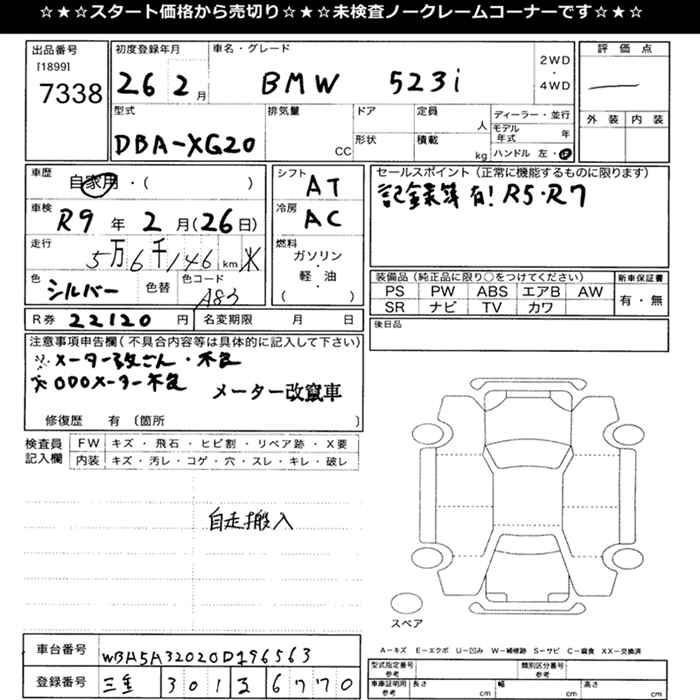 ☆★☆★スタート価格から売切り☆★☆★未検査ノークレームコーナーです☆★☆
出品番号
[1899]
7338
初度登録年月
26 2 月
車名・グレード
BMW 523i
2WD
・
4WD
評価点
外装 内装
型式
DBA-XG20
排気量
CC
ドア
形状
定員
人
積載
kg
ディーラー・並行
モデル年式 年
ハンドル 左・右
車歴
自家用・( )
車検
R9 年 2 月(26日)
走行
5万6千146 km
色
シルバー
色替
色コード
A83
シフト
AT
冷房
AC
燃料
ガソリン
・
軽・油
( )
セールスポイント(正常に機能するものに限ります)
記録簿有! R5・R7
装備品(純正品に限り○をつけてください)
PS PW ABS エアB AW
SR ナビ TV カワ
新車保証書
有・無
R券 22120 円
名変期限 月 日
後日品
注意事項申告欄(不具合内容等は具体的に記入して下さい)
※メーター改ざん・不良
※ODOメーター不良 メーター改竄車
修復歴 有(箇所 )
検査員
記入欄
FW キズ・飛石・ヒビ割・リペア跡・X要
内装 キズ・汚レ・コゲ・穴・スレ・キレ・破レ
自走搬入
スペア
A−キズ E−エクボ U−凹み W−補修跡 S−サビ C−腐食 XX−交換済
車台番号 WBA5A32020D196563
登録番号 三重 301 3 6770
型式指定番号
参考
類別区分番号
参考
車庫証明用
参考
長さ cm
幅 cm
高さ cm